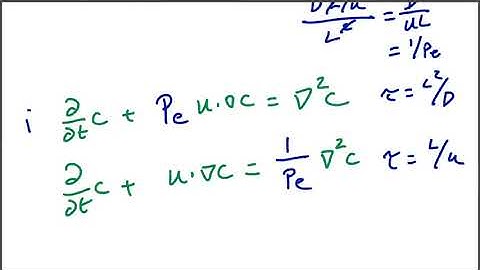 DL/u / L² = D / uL
= 1/Pe
i ∂/∂t c + Pe u·∇c = ∇²c τ = L²/D
∂/∂t c + u·∇c = 1/Pe ∇²c τ = L/u